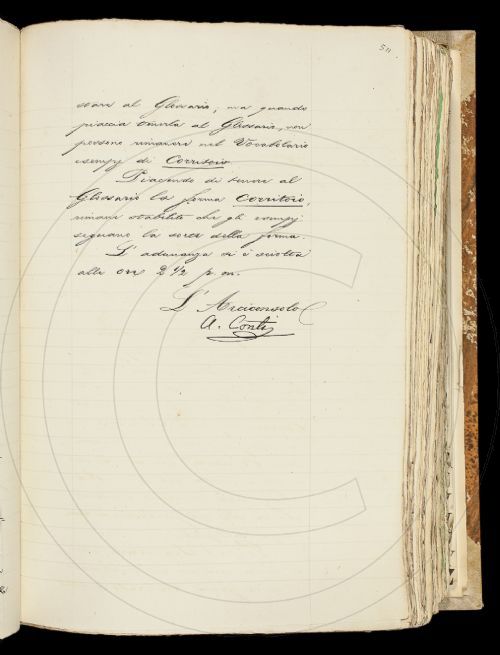 511
stare al Glossario; ma quando
piaccia tenerla al Glossario, non
possono rimanere nel Vocabolario
esempj di Corritoio
Piacendo di tenere al
Glossario la forma Corritoio,
rimane stabilito che gli esempj
seguano la sorte della forma.
L'adunanza si è sciolta
alle ore 2 1/2 p. m.
L'Arciconsolo
A. Conti